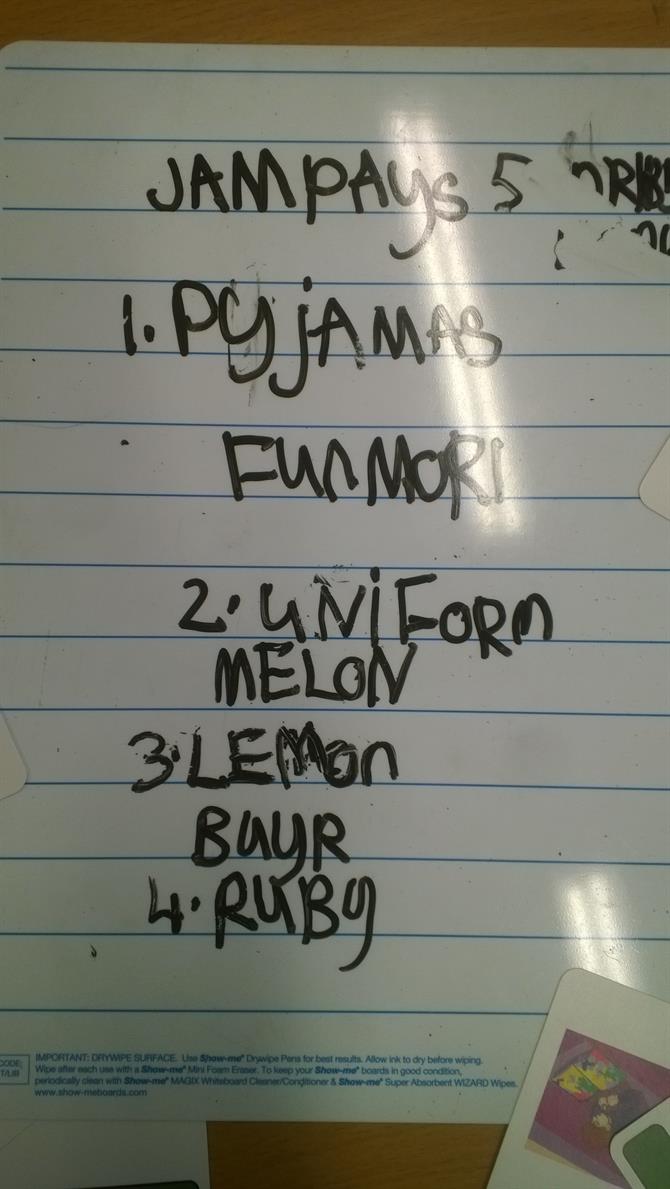 JAMPAys 5
1. PyjAMAS
FunMORI
2. uNiFORm
MELON
3. LEMon
BuyR
4. RuBy
CODE:
T/LIB
IMPORTANT: DRYWIPE SURFACE. Use Show-me® Drywipe Pens for best results. Allow ink to dry before wiping.
Wipe after each use with a Show-me® Mini Foam Eraser. To keep your Show-me® boards in good condition,
periodically clean with Show-me® MAGIX Whiteboard Cleaner/Conditioner & Show-me® Super Absorbent WIZARD Wipes.
www.show-meboards.com